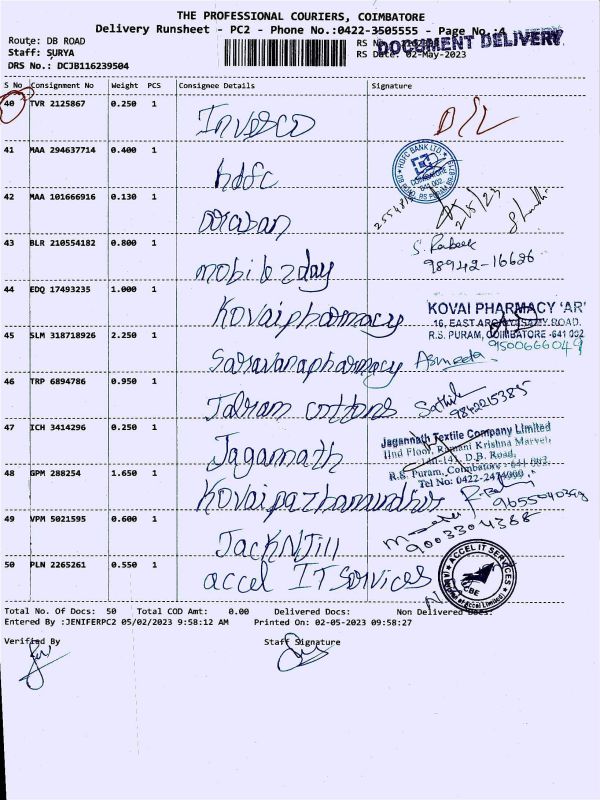 THE PROFESSIONAL COURIERS, COIMBATORE
Delivery Runsheet - PC2 - Phone No.:0422-3505555 - Page No.:4
Route: DB ROAD
RS No
DOCUMENT DELIVERY
Staff: SURYA
RS Date: 02-May-2023
DRS No.: DCJB116239504
S No Consignment No Weight PCS Consignee Details Signature
40 TVR 2125867 0.250 1 Invesco D/L
41 MAA 294637714 0.400 1 hdfc
HDFC BANK LTD.
COIMBATORE
641 002
42 MAA 101666916 0.130 1
2/5/23
43 BLR 210554182 0.800 1 mobile 2 day
98942-16626
44 EDQ 17493235 1.000 1 Kovai pharmacy
KOVAI PHARMACY 'AR'
16, EAST AROKIASAMY ROAD,
R.S. PURAM, COIMBATORE -641 002
45 SLM 318718926 2.250 1 Saravana pharmacy
9500666049
46 TRP 6894786 0.950 1 Jairam cottons
9842215385
47 ICH 3414296 0.250 1 Jagannath
Jagannath Textile Company Limited
IInd Floor, Ramani Krishna Marvel,
D.B. Road,
R.S. Puram, Coimbatore - 641 002.
48 GPM 288254 1.650 1 Kovai pazhamudhir
49 VPM 5021595 0.600 1 Jack N Jill
9003304368
50 PLN 2265261 0.550 1 accel IT Services
ACCEL IT SERVICES
CBE
Total No. Of Docs: 50 Total COD Amt: 0.00 Delivered Docs: Non Delivered Docs:
Entered By :JENIFERPC2 05/02/2023 9:58:12 AM Printed On: 02-05-2023 09:58:27
Verified By Staff Signature